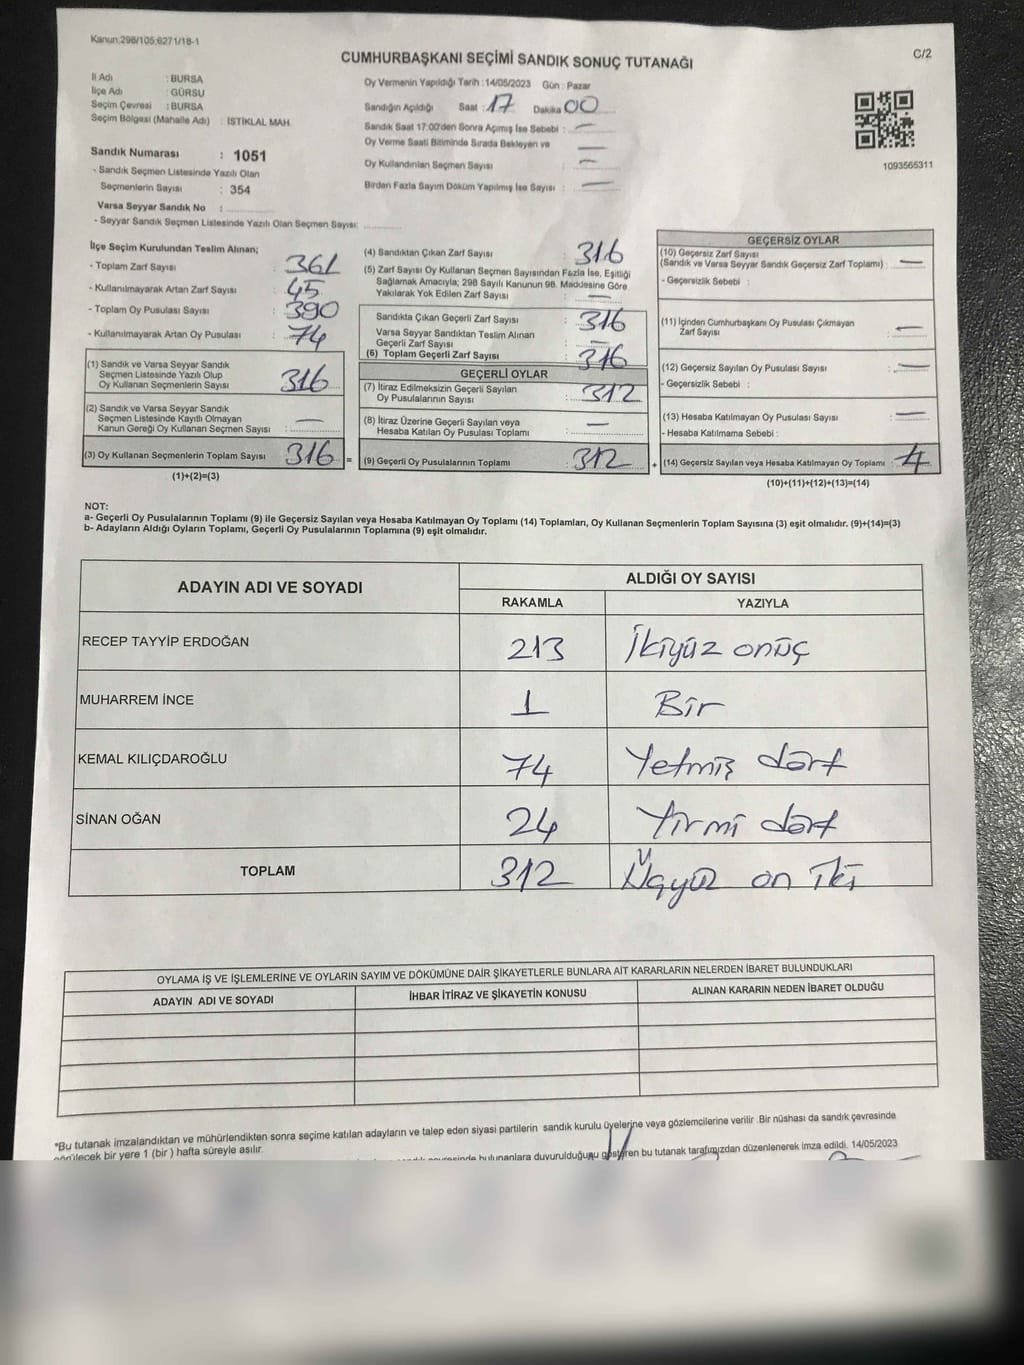 Kanun:298/105;6271/18-1
C/2
CUMHURBAŞKANI SEÇİMİ SANDIK SONUÇ TUTANAĞI
İl Adı : BURSA
İlçe Adı : GÜRSU
Seçim Çevresi : BURSA
Seçim Bölgesi (Mahalle Adı) : İSTİKLAL MAH.
Sandık Numarası : 1051
- Sandık Seçmen Listesinde Yazılı Olan
Seçmenlerin Sayısı : 354
Varsa Seyyar Sandık No :
- Seyyar Sandık Seçmen Listesinde Yazılı Olan Seçmen Sayısı:
Oy Vermenin Yapıldığı Tarih : 14/05/2023 Gün : Pazar
Sandığın Açıldığı Saat : 17 Dakika 00
Sandık Saat 17:00'den Sonra Açımış İse Sebebi : —
Oy Verme Saati Bitiminde Sırada Bekleyen ve —
Oy Kullandırılan Seçmen Sayısı —
Birden Fazla Sayım Döküm Yapılmış İse Sayısı : —
1093565311
İlçe Seçim Kurulundan Teslim Alınan;
- Toplam Zarf Sayısı : 361
- Kullanılmayarak Artan Zarf Sayısı : 45
- Toplam Oy Pusulası Sayısı : 390
- Kullanılmayarak Artan Oy Pusulası : 74
(1) Sandık ve Varsa Seyyar Sandık
Seçmen Listesinde Yazılı Olup
Oy Kullanan Seçmenlerin Sayısı : 316
(2) Sandık ve Varsa Seyyar Sandık
Seçmen Listesinde Kayıtlı Olmayan
Kanun Gereği Oy Kullanan Seçmen Sayısı : —
(3) Oy Kullanan Seçmenlerin Toplam Sayısı : 316 =
(1)+(2)=(3)
(4) Sandıktan Çıkan Zarf Sayısı : 316
(5) Zarf Sayısı Oy Kullanan Seçmen Sayısından Fazla İse, Eşitliği
Sağlamak Amacıyla; 298 Sayılı Kanunun 98. Maddesine Göre
Yakılarak Yok Edilen Zarf Sayısı : —
Sandıkta Çıkan Geçerli Zarf Sayısı : 316
Varsa Seyyar Sandıktan Teslim Alınan
Geçerli Zarf Sayısı : —
(6) Toplam Geçerli Zarf Sayısı : 316
GEÇERLİ OYLAR
(7) İtiraz Edilmeksizin Geçerli Sayılan
Oy Pusulalarının Sayısı : 312
(8) İtiraz Üzerine Geçerli Sayılan veya
Hesaba Katılan Oy Pusulası Toplamı : —
(9) Geçerli Oy Pusulalarının Toplamı : 312 +
GEÇERSİZ OYLAR
(10) Geçersiz Zarf Sayısı
(Sandık ve Varsa Seyyar Sandık Geçersiz Zarf Toplamı) : —
- Geçersizlik Sebebi :
(11) İçinden Cumhurbaşkanı Oy Pusulası Çıkmayan
Zarf Sayısı : —
(12) Geçersiz Sayılan Oy Pusulası Sayısı : —
- Geçersizlik Sebebi :
(13) Hesaba Katılmayan Oy Pusulası Sayısı : —
- Hesaba Katılmama Sebebi :
(14) Geçersiz Sayılan veya Hesaba Katılmayan Oy Toplamı : 4
(10)+(11)+(12)+(13)=(14)
NOT:
a- Geçerli Oy Pusulalarının Toplamı (9) ile Geçersiz Sayılan veya Hesaba Katılmayan Oy Toplamı (14) Toplamları, Oy Kullanan Seçmenlerin Toplam Sayısına (3) eşit olmalıdır. (9)+(14)=(3)
b- Adayların Aldığı Oyların Toplamı, Geçerli Oy Pusulalarının Toplamına (9) eşit olmalıdır.
ADAYIN ADI VE SOYADI ALDIĞI OY SAYISI
RAKAMLA YAZIYLA
RECEP TAYYİP ERDOĞAN 213 İkiyüz onüç
MUHARREM İNCE 1 Bir
KEMAL KILIÇDAROĞLU 74 Yetmiş dört
SİNAN OĞAN 24 Yirmi dört
TOPLAM 312 Üçyüz on iki
OYLAMA İŞ VE İŞLEMLERİNE VE OYLARIN SAYIM VE DÖKÜMÜNE DAİR ŞİKAYETLERLE BUNLARA AİT KARARLARIN NELERDEN İBARET BULUNDUKLARI
ADAYIN ADI VE SOYADI İHBAR İTİRAZ VE ŞİKAYETİN KONUSU ALINAN KARARIN NEDEN İBARET OLDUĞU
*Bu tutanak imzalandıktan ve mühürlendikten sonra seçime katılan adayların ve talep eden siyasi partilerin sandık kurulu üyelerine veya gözlemcilerine verilir .Bir nüshası da sandık çevresinde
görülecek bir yere 1 (bir ) hafta süreyle asılır.
bulunanlara duyurulduğunu gösteren bu tutanak tarafımızdan düzenlenerek imza edildi. 14/05/2023